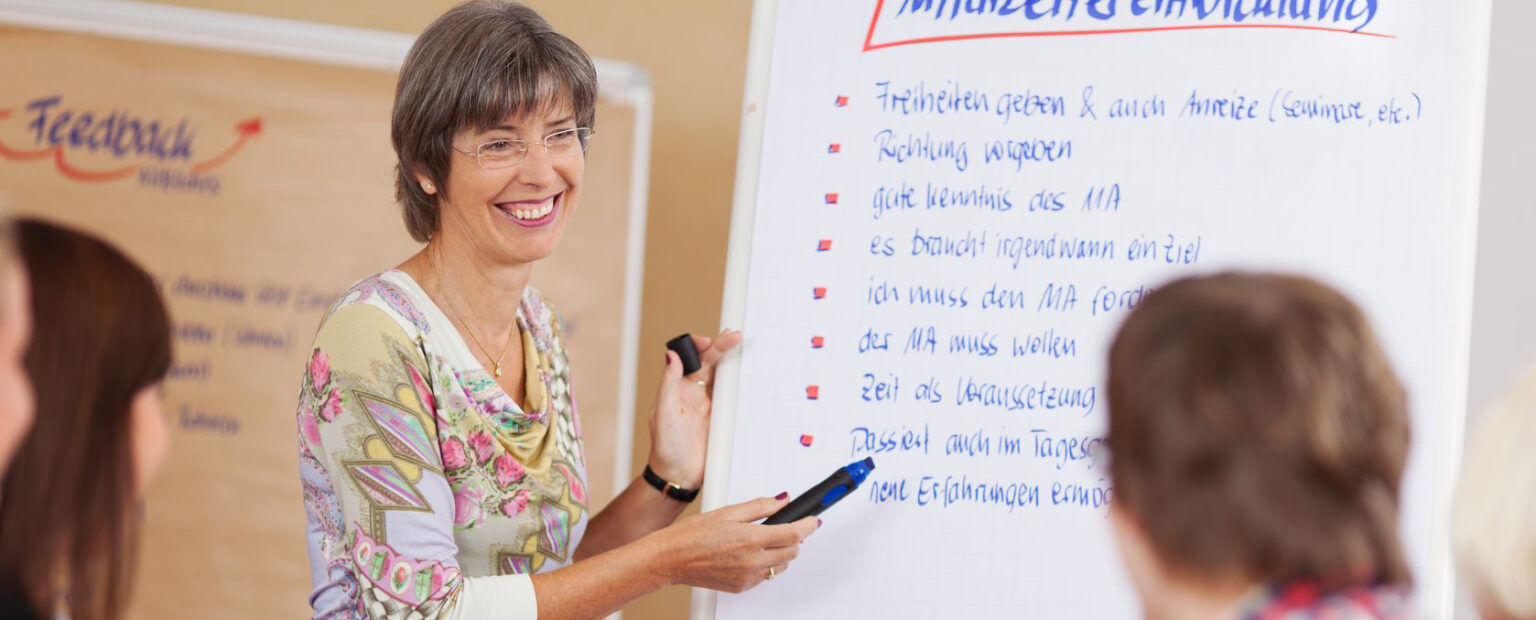 Feedback
Mitarbeiterentwicklung
Freiheiten geben & auch Anreize (Seminare, etc.)
Richtung vorgeben
gute Kenntnis des MA
es braucht irgendwann ein Ziel
ich muss den MA forde
der MA muss wollen
Zeit als Voraussetzung
Passiert auch im Tagesg
neue Erfahrungen ermög